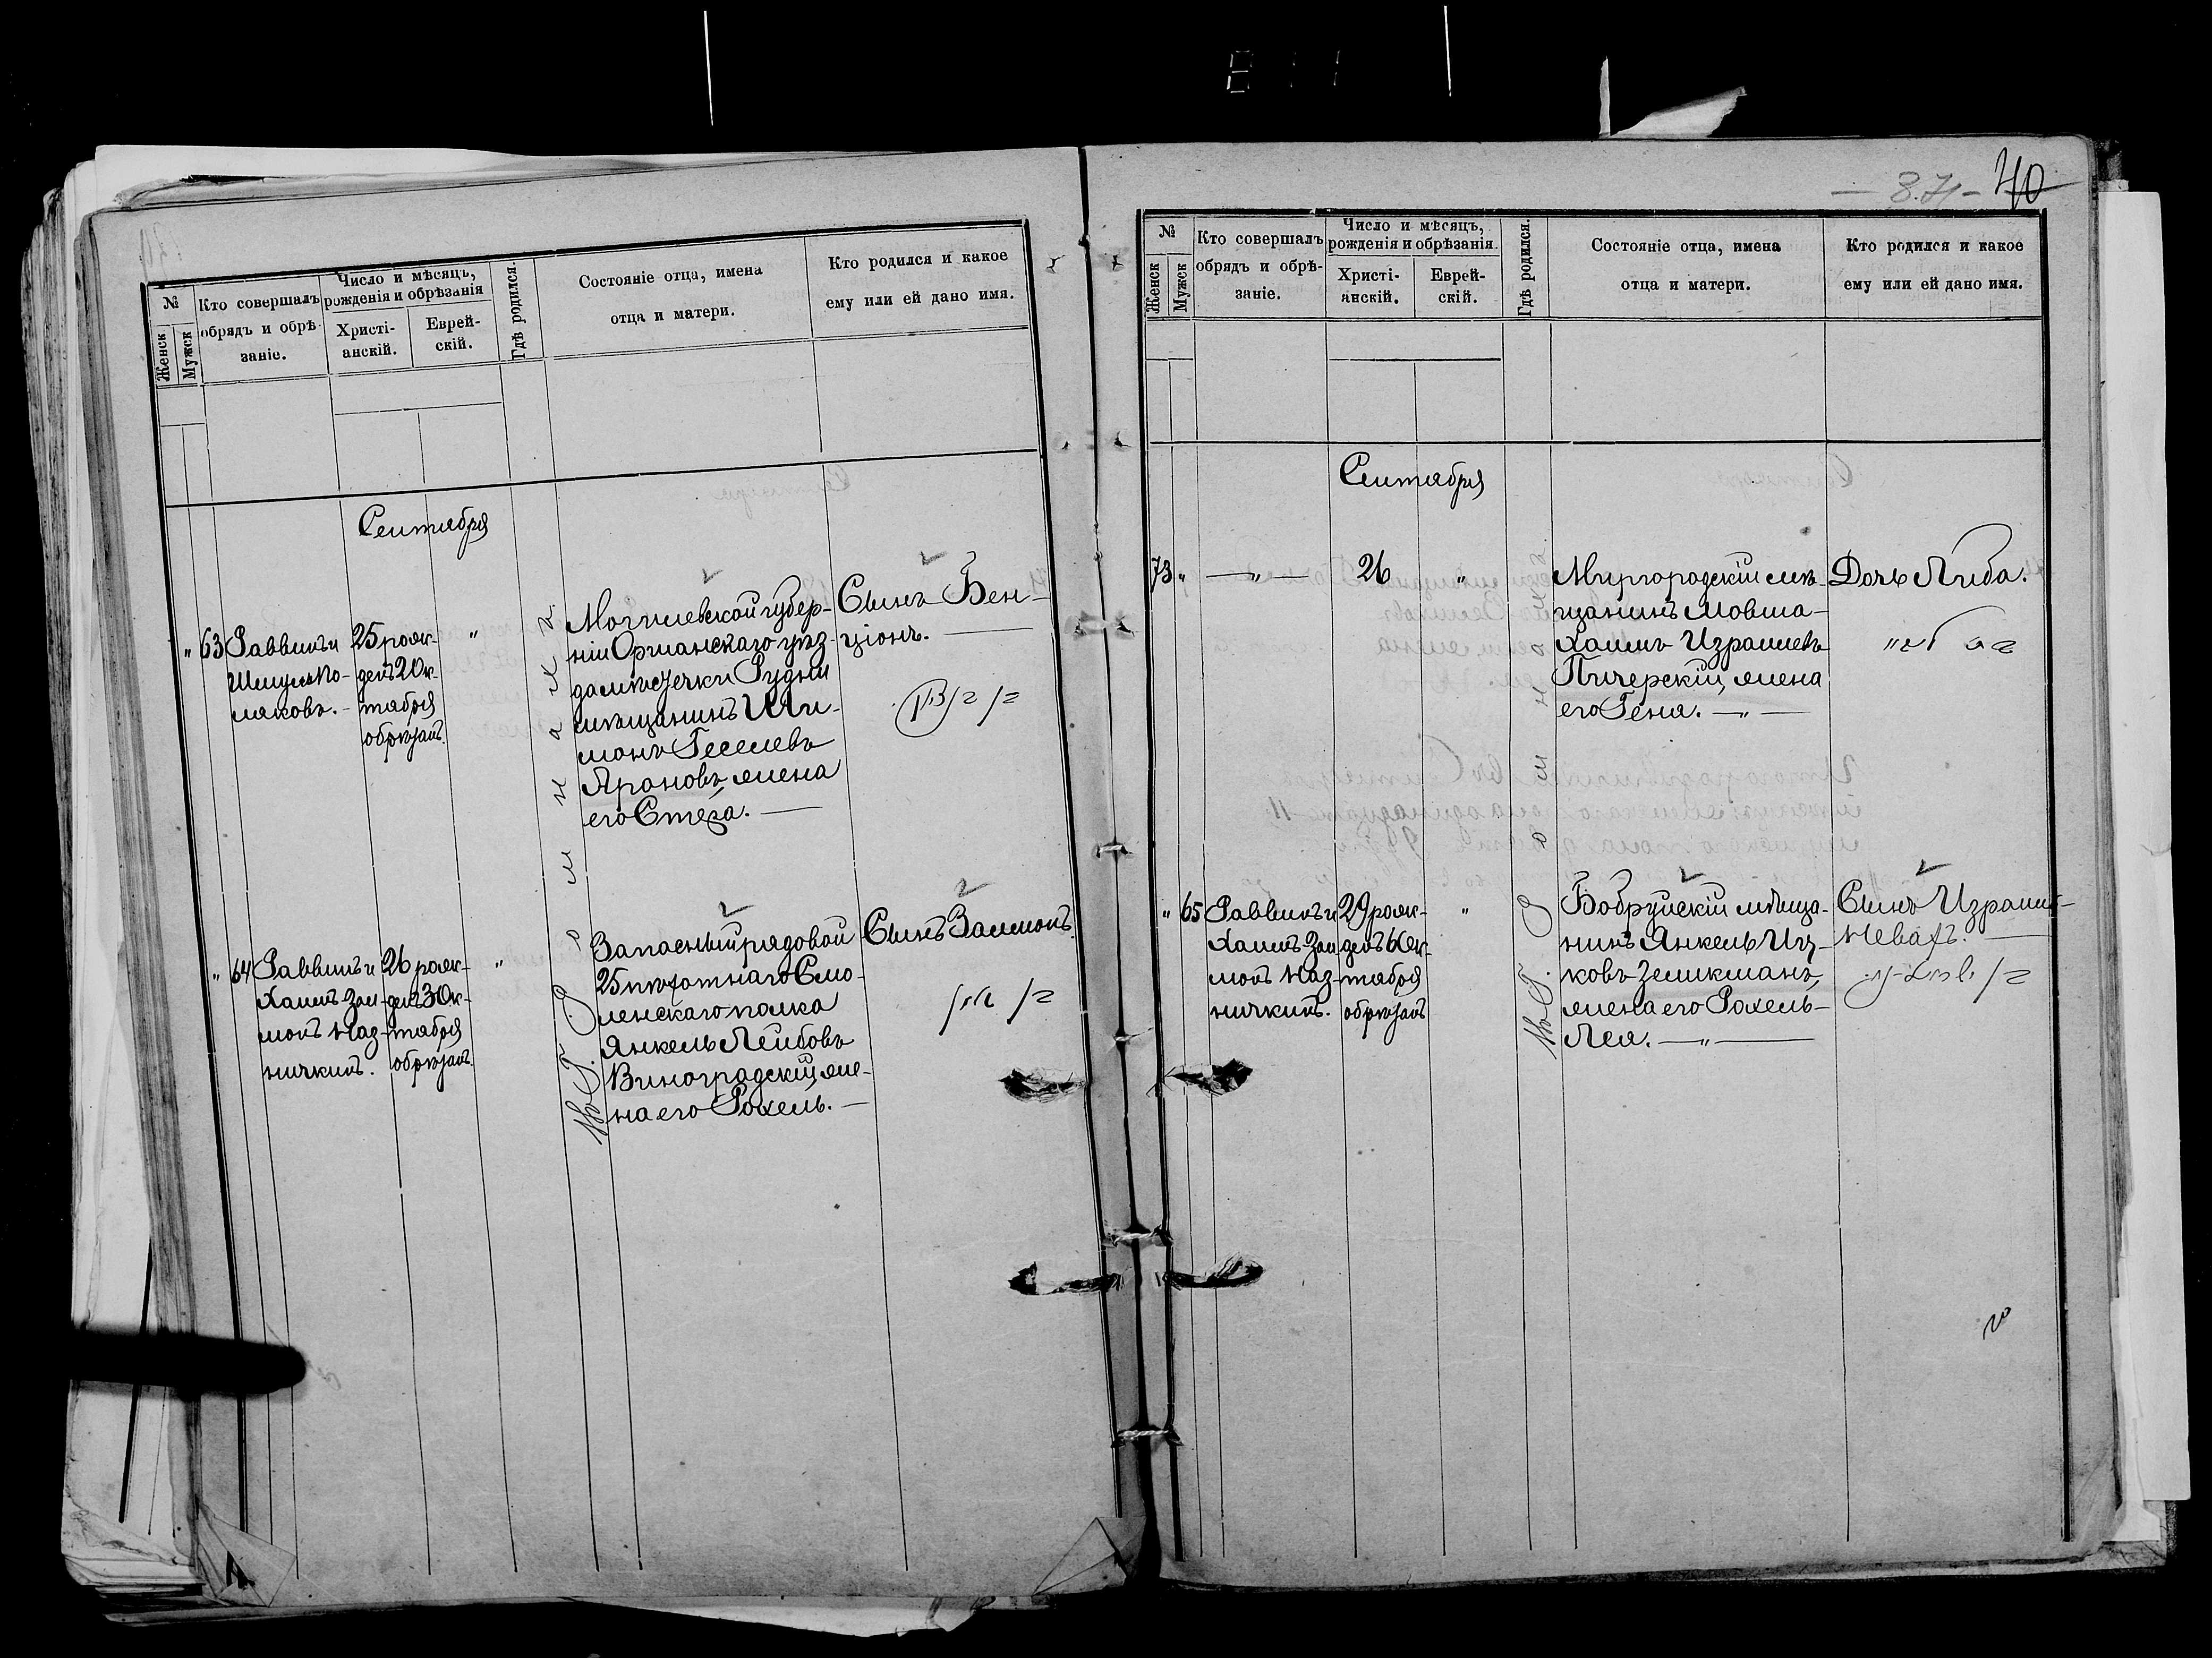 №
Женск
Мужск
Кто совершалъ
обрядъ и обрѣ-
заніе.
Число и мѣсяцъ,
рожденія и обрѣзанія
Христі-
анскій.
Еврей-
скій.
Гдѣ родился.
Состояніе отца, имена
отца и матери.
Кто родился и какое
ему или ей дано имя.
Сентября
" 63
Раввинъ и
Шмуль По-
ляковъ.
25 рож-
денъ 2 Ок-
тября
обрѣзанъ.
"
Могилевской губер-
ніи Оршанскаго уѣз-
да мѣстечки Рудни
мѣщанинъ Ши-
монъ Геселевъ
Ароновъ, жена
его Стеха. —
Сынъ Бен-
ціонъ. —
" 64
Раввинъ и
Хаимъ Зал-
монъ Наз-
ничкинъ.
26 рож-
денъ 3 Ок-
тября
обрѣзанъ.
"
Запасный рядовой
25 пѣхотнаго Смо-
ленскаго полка
Янкель Лейбовъ
Виноградскій, же-
на его Рохель. —
Сынъ Залмонъ.
Въ Г. Роменахъ
40
№
Женск
Мужск
Кто совершалъ
обрядъ и обрѣ-
заніе.
Число и мѣсяцъ,
рожденія и обрѣзанія.
Христі-
анскій.
Еврей-
скій.
Гдѣ родился.
Состояніе отца, имена
отца и матери.
Кто родился и какое
ему или ей дано имя.
Сентября
73 "
— " —
26
"
Миргородскій мѣ-
щанинъ Мовша-
Хаимъ Израилевъ
Пичерскій, жена
его Геня. — " —
Дочь Либа.
" 65
Раввинъ и
Хаимъ Зал-
монъ Наз-
ничкинъ.
29 рож-
денъ 6 Ок-
тября
обрѣзанъ
"
Бобруйскій мѣща-
нинъ Янкель Иц-
ковъ Зеликманъ,
жена его Рохель-
Лея. — " —
Сынъ Израиль-
Невахъ. —
Въ Г. Роменахъ